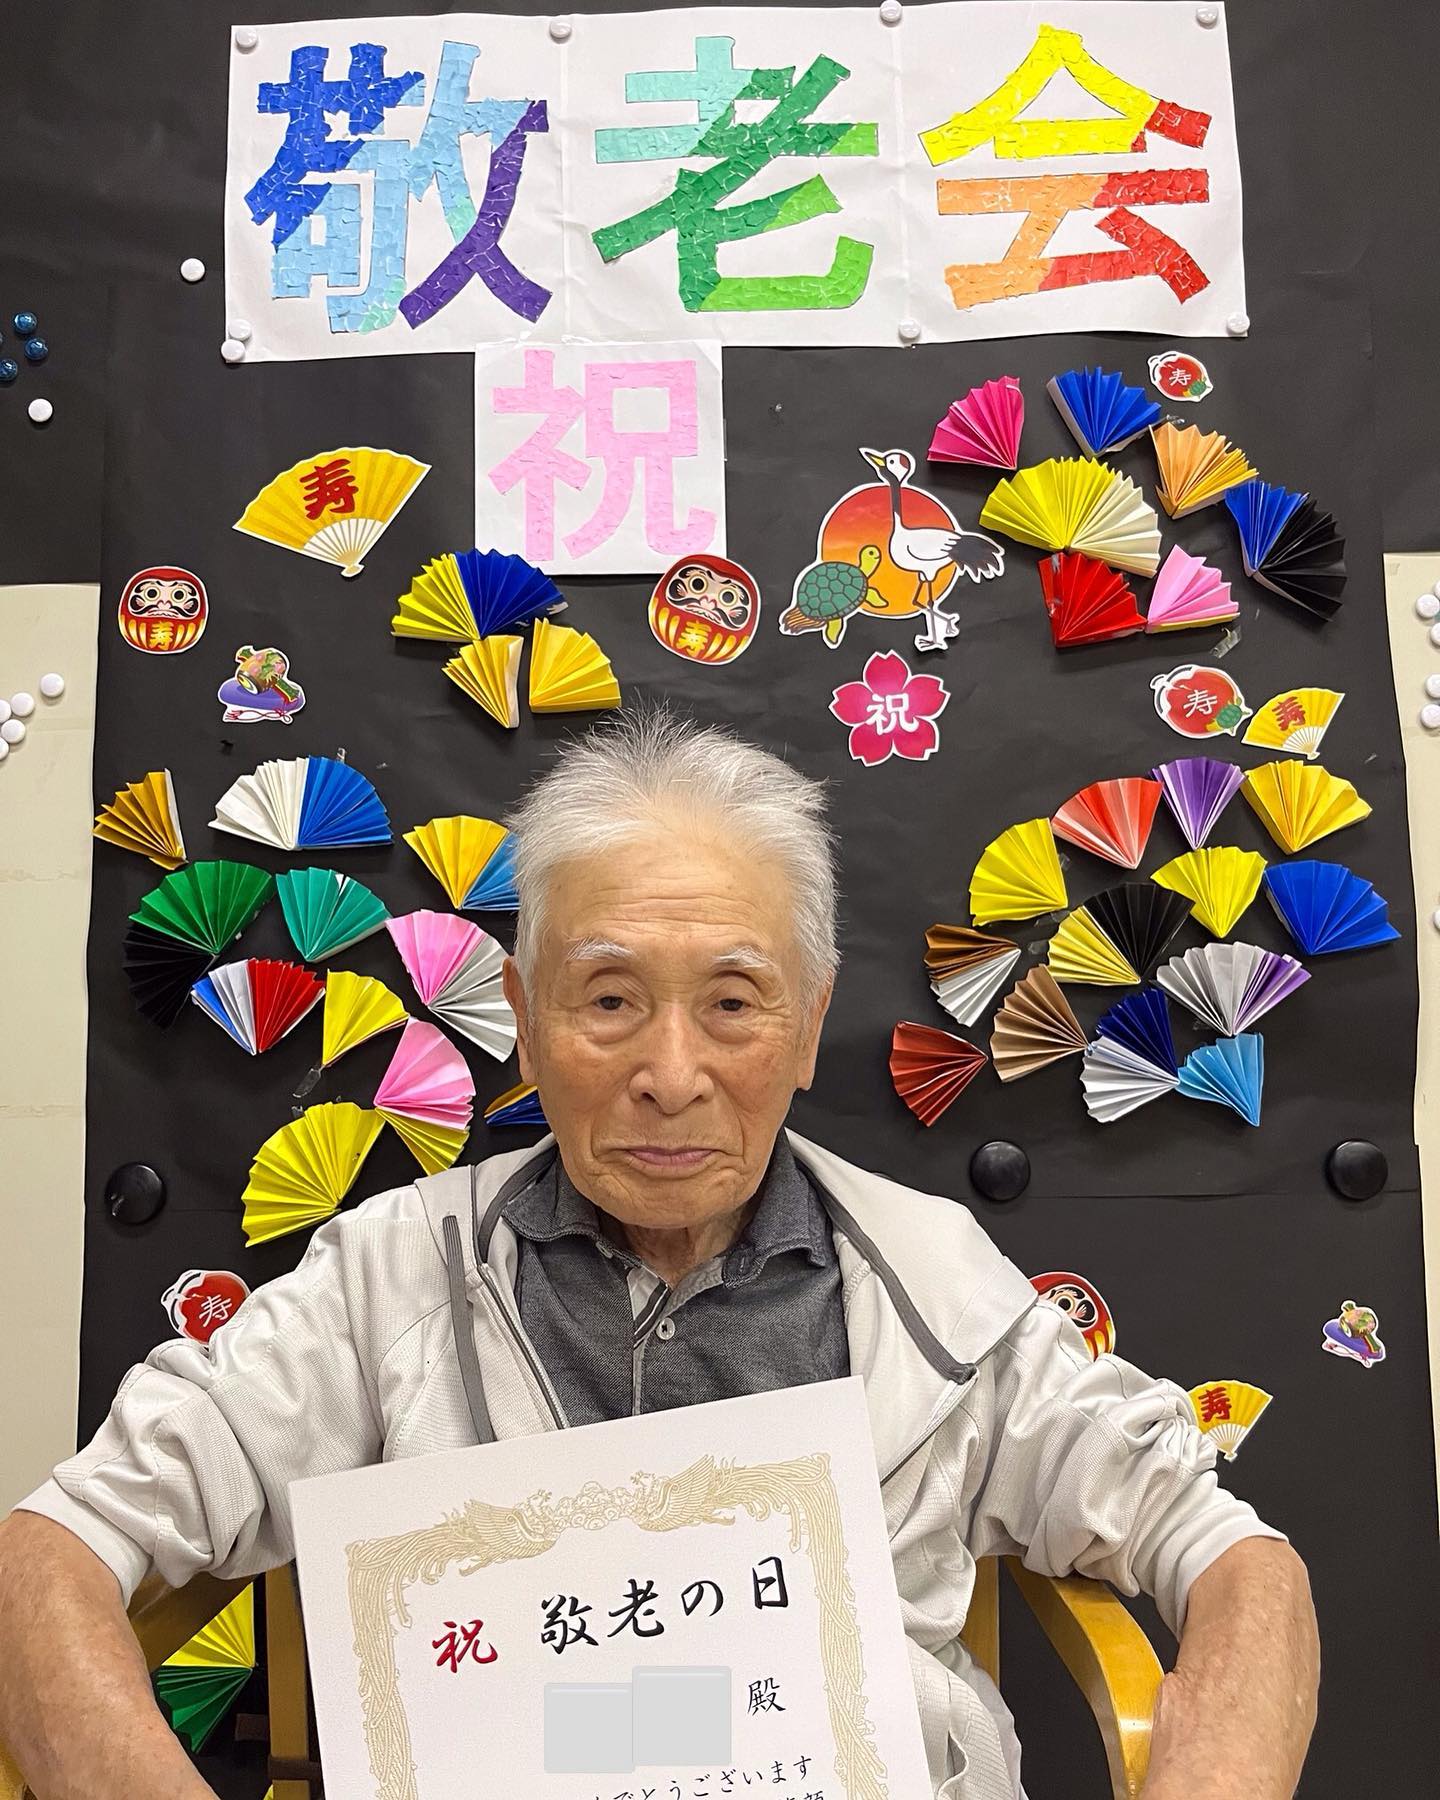 敬老会
祝
寿
寿
寿
寿
祝
寿
寿
寿
寿
祝 敬老の日
殿
でとうございます